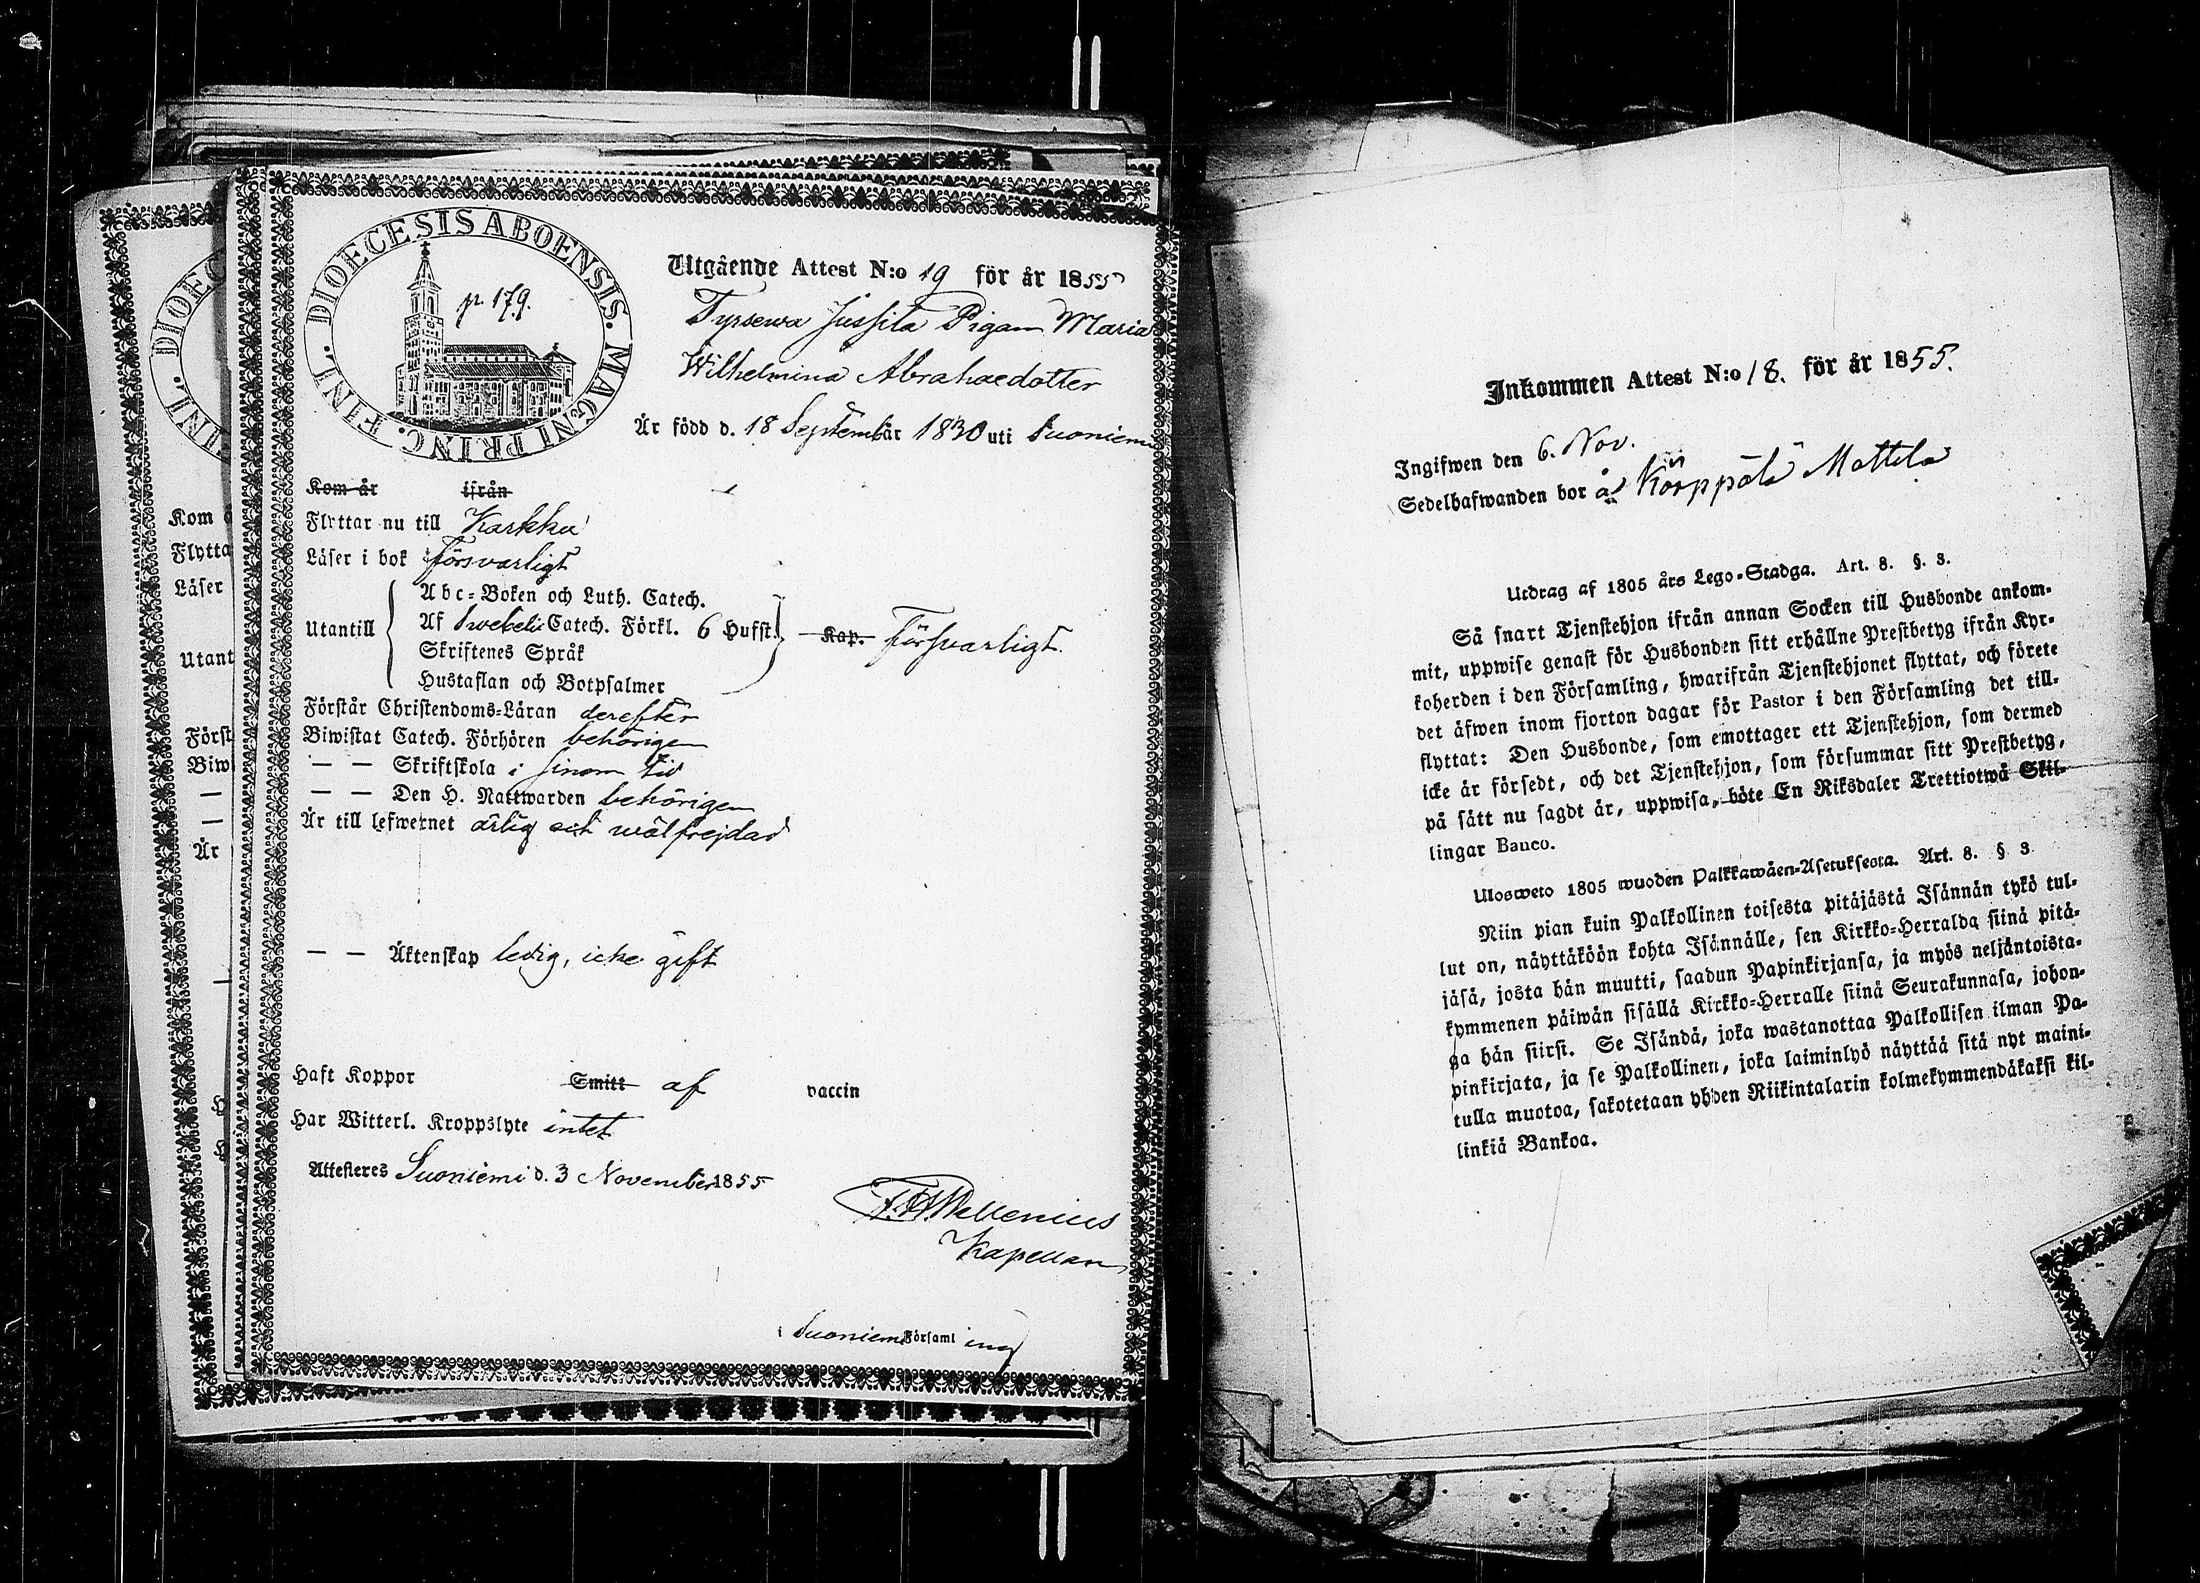 DIOECESIS ABOENSIS. MAGNI PRINC. FINL.
p. 179.
Utgående Attest N:o 19 för år 1855
Tyrsewa Jussila Pigan Maria
Wilhelmina Abrahaedotter
Är född d. 18 Septembr år 1830 uti Suoniemi
Kom år ifrån
Flyttar nu till Karkku
Läser i bok försvarligt
Utantill
Abc-Boken och Luth. Catech.
Af Swebelii Catech. Förkl. 6 Hufst.
Skriftenes Språk
Hustaflan och Botpsalmer
Kap. försvarligt.
Förstår Christendoms-Läran derefter
Biwistat Catech. Förhören behörigen
— — Skriftskola i sinom tid
— — Den H. Nattwarden behörigen
Är till lefwernet ärlig och wälfrejdad
— — Äktenskap ledig, icke gift
Haft Koppor Smitt af vaccin
Har Witterl. Kroppslyte intet
Attesteres Suoniemi d. 3 November 1855
Wallenius
Kapellan
Suoniemi Församl ing
DIOEC
INL.
Kom å
Flytta
Läser
Utant
Först
Biw
—
—
Är
—
Inkommen Attest N:o 18. för år 1855.
Ingifwen den 6. Nov.
Sedelhafwanden bor å Körppälä Mattila
Utdrag af 1805 års Lego-Stadga. Art. 8. §. 3.
Så snart Tjenstehjon ifrån annan Socken till Husbonde ankom-
mit, uppwise genast för Husbonden sitt erhållne Prestbetyg ifrån Kyr-
koherden i den Församling, hwarifrån Tjenstehjonet flyttat, och förete
det äfwen inom fjorton dagar för Pastor i den Församling det till-
flyttat: Den Husbonde, som emottager ett Tjenstehjon, som dermed
icke är försedt, och det Tjenstehjon, som försummar sitt Prestbetyg,
på sätt nu sagdt är, uppwisa, böte En Riksdaler Trettiotwå Skil-
lingar Banco.
Ulosweto 1805 wuoden Palkkawäen-Asetuksesta. Art. 8. § 3
Niin pian kuin Palkollinen toisesta pitäjästä Isännän tykö tul-
lut on, näyttäköön kohta Isännälle, sen Kirkko-Herralda siinä pitä-
jäsä, josta hän muutti, saadun Papinkirjansa, ja myös neljäntoista-
kymmenen päiwän sisällä Kirkko-Herralle siinä Seurakunnasa, johon-
ga hän siirsi. Se Isändä, joka wastanottaa Palkollisen ilman Pa-
pinkirjata, ja se Palkollinen, joka laiminlyö näyttää sitä nyt maini-
tulla muotoa, sakotetaan yhden Riikintalarin kolmekymmendäkaksi kil-
linkiä Bankoa.